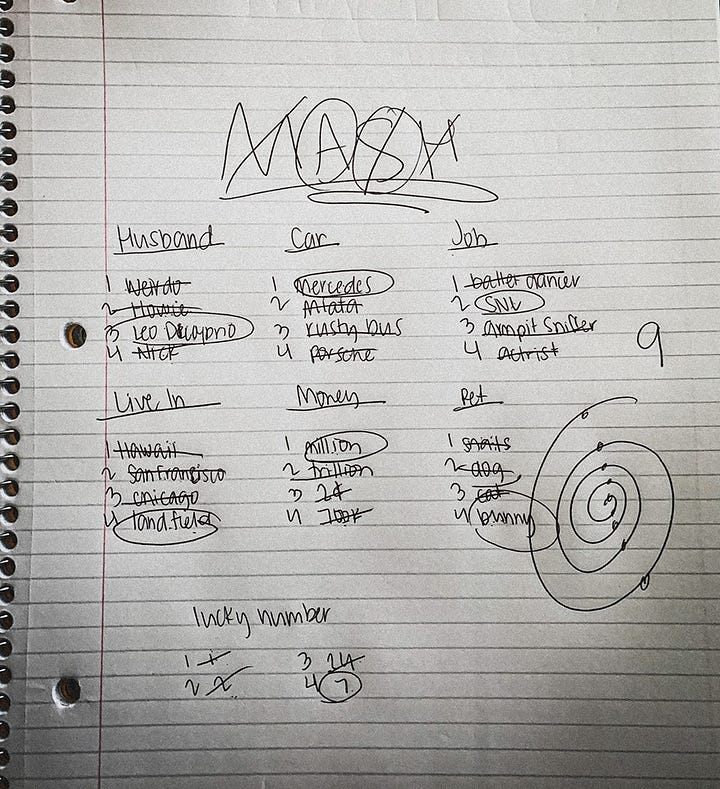 MASH
Husband Car Job
1 Weirdo 1 Mercedes 1 ballet dancer
2 Howie 2 Miata 2 SNL
3 Leo Dicaprio 3 rusty bus 3 armpit sniffer
4 Nick 4 Porsche 4 actrist
9
Live In Money Pet
1 Hawaii 1 million 1
2 San Francisco 2 trillion 2 dog
3 chicago 3 2¢ 3 cat
4 landfield 4 4 bunny
lucky number
1 3 24
2 2 4 7